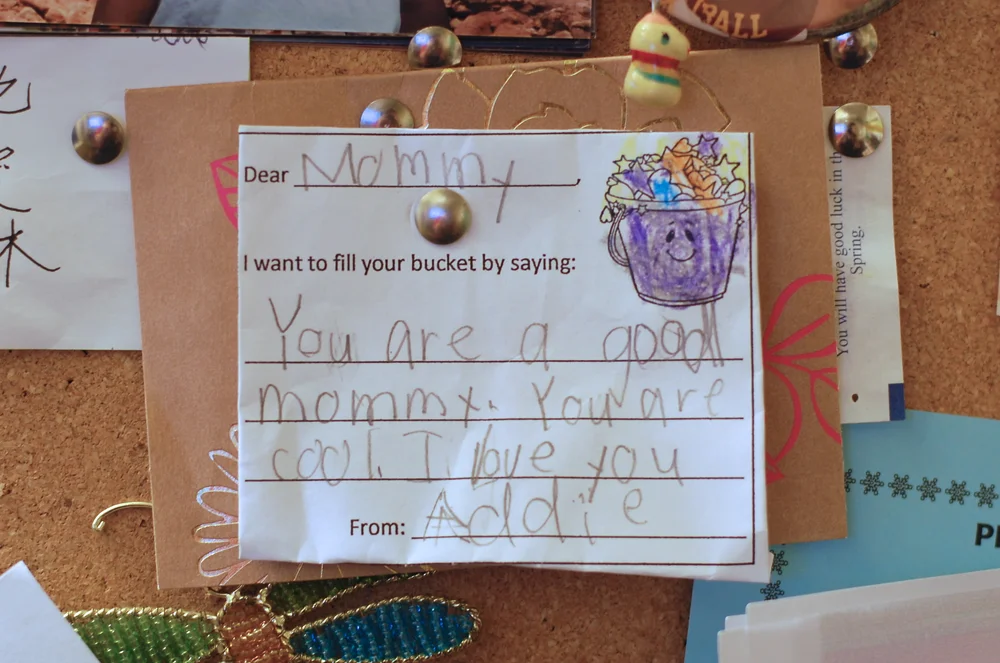 Dear Mommy,
I want to fill your bucket by saying:
You are a good
mommy. You are
cool. I love you
From: Addie
You will have good luck in th
Spring.
BALL
木